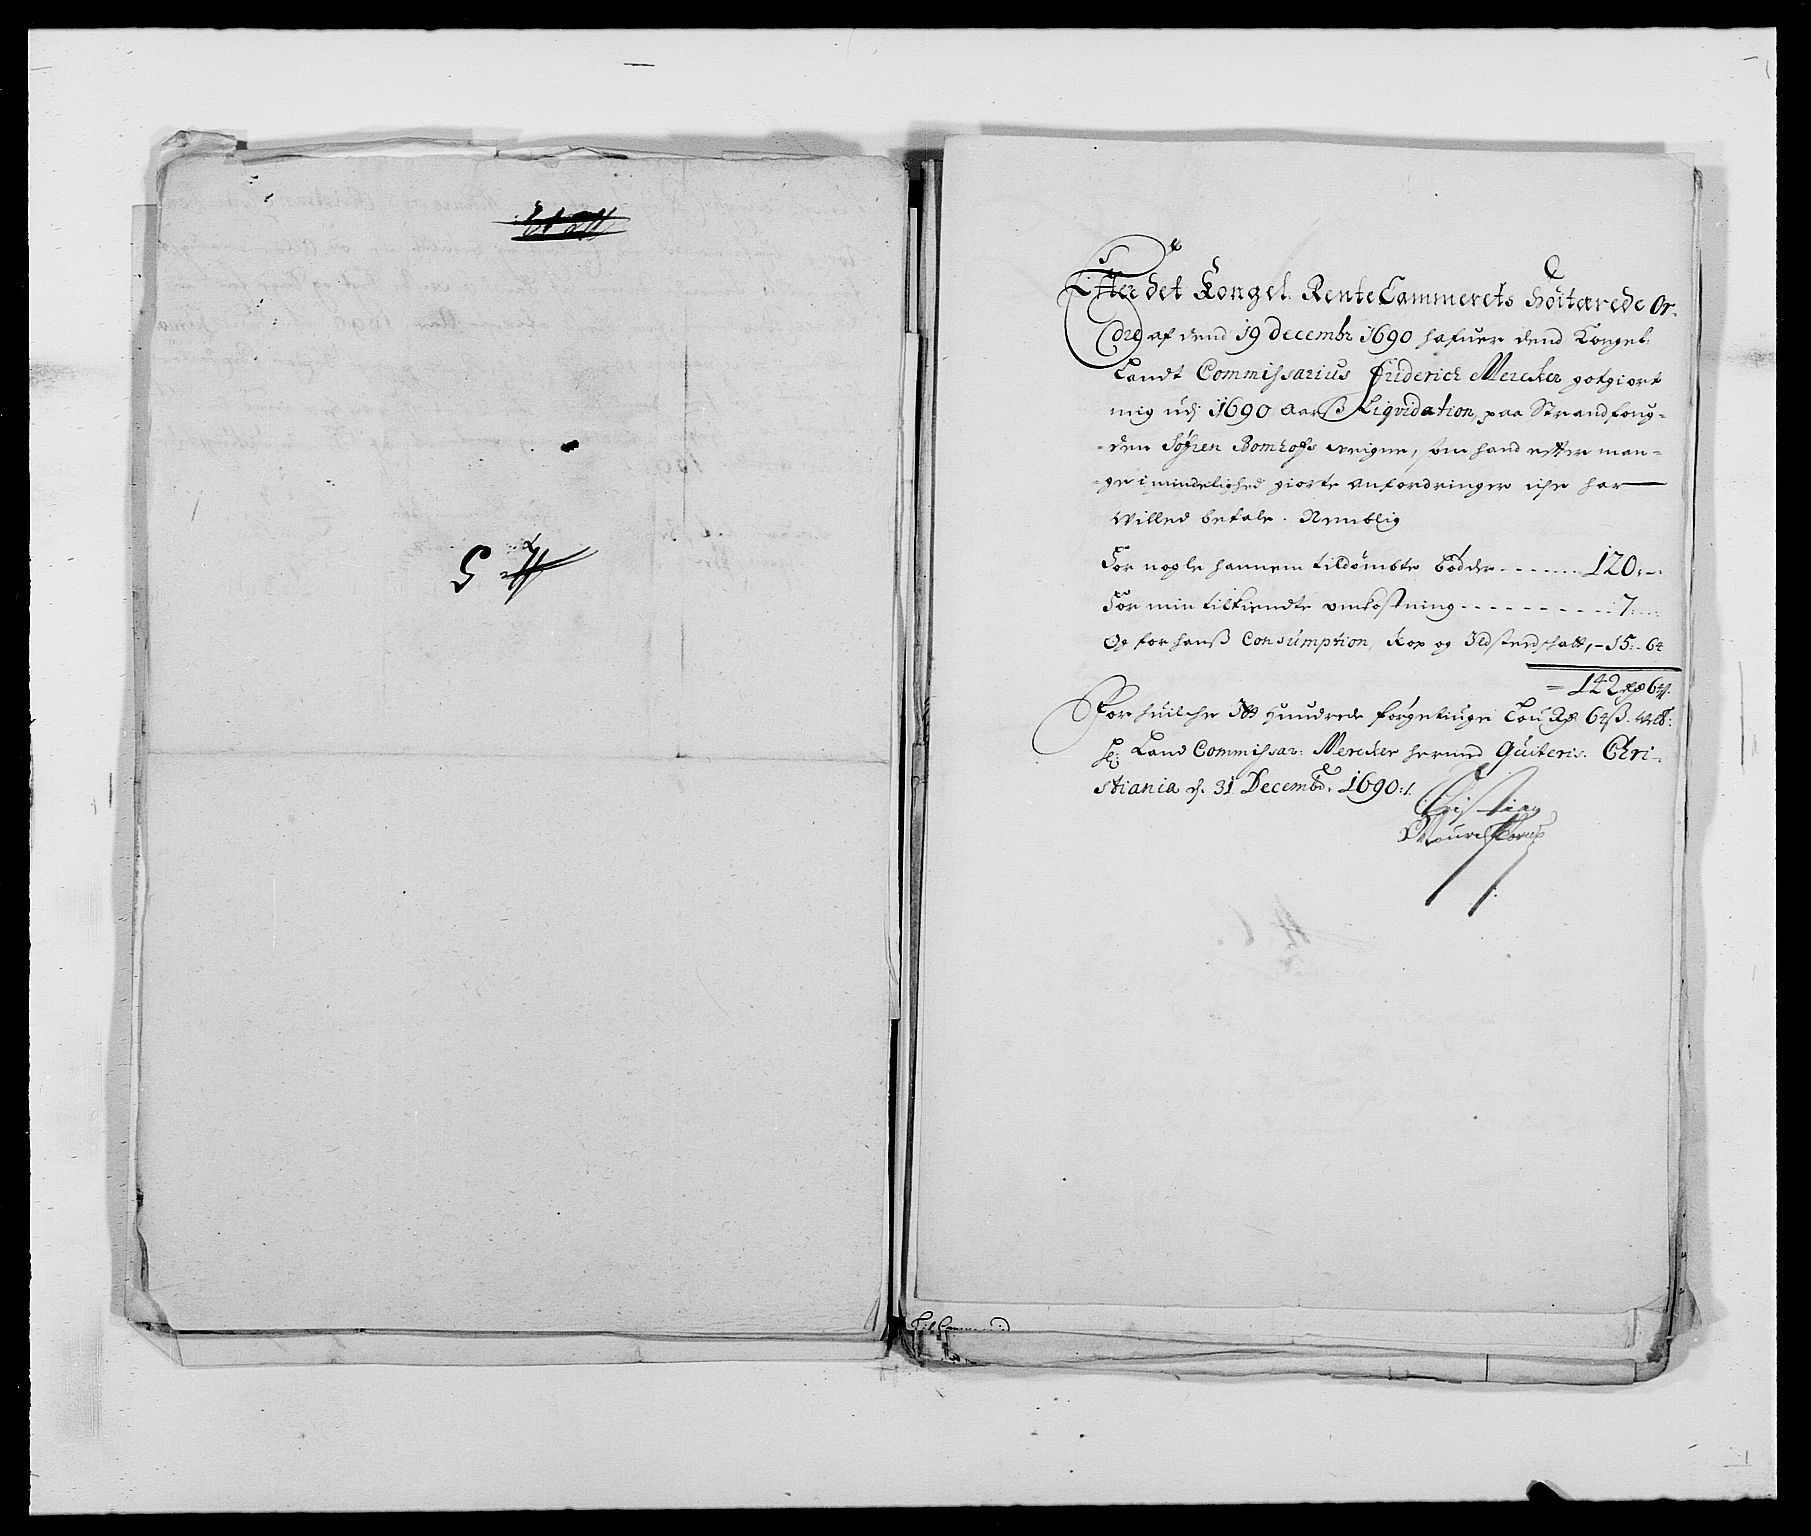 5
Efter det Kongel. Rente Cammerets Höitærede Or-
dre af dend 19 Decembr 1690 hafuer dend Kongel:
Landt Commissarius Friderich Mercker gotgiort
mig udj 1690 Aarß Liqvidation, paa Strandfoug-
-den Söfren Bomhofs veigne, som hand efter man-
-ge i mindelighed giorte anfordringer iche har
villed betale. Nemblig
For nogle hannem tildömbte bödder - - - - - - 120:-:
For min tilkiendte omkostning - - - - - - - - - - 7:
Og for hanß Consumption, Kop og Ildsted skatt, - 15:- 64
142 Rdr 64 ß.
For huilche It Hundrede förgetiuge Tou Rdr 64 ß.
Land Commissar: Mercker hermed Quiteris. Chri-
stiania d. 31 Decembr. 1690:/.
Christian